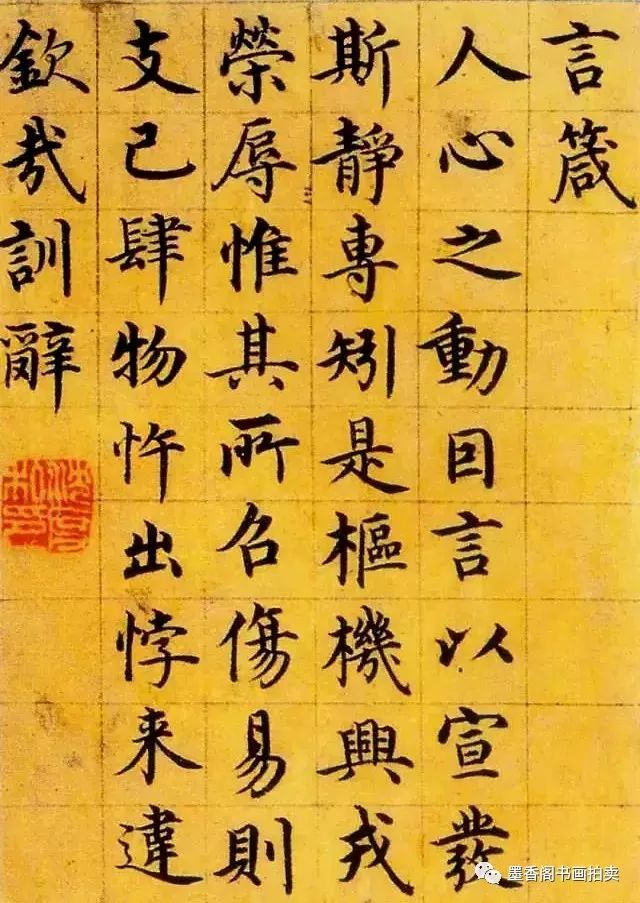 言箴
人心之動囙言以宣發
斯靜專矧是樞機興戎
榮辱惟其所召傷易則
支己肆物忤出悖来違
欽哉訓辭
墨香阁书画拍卖